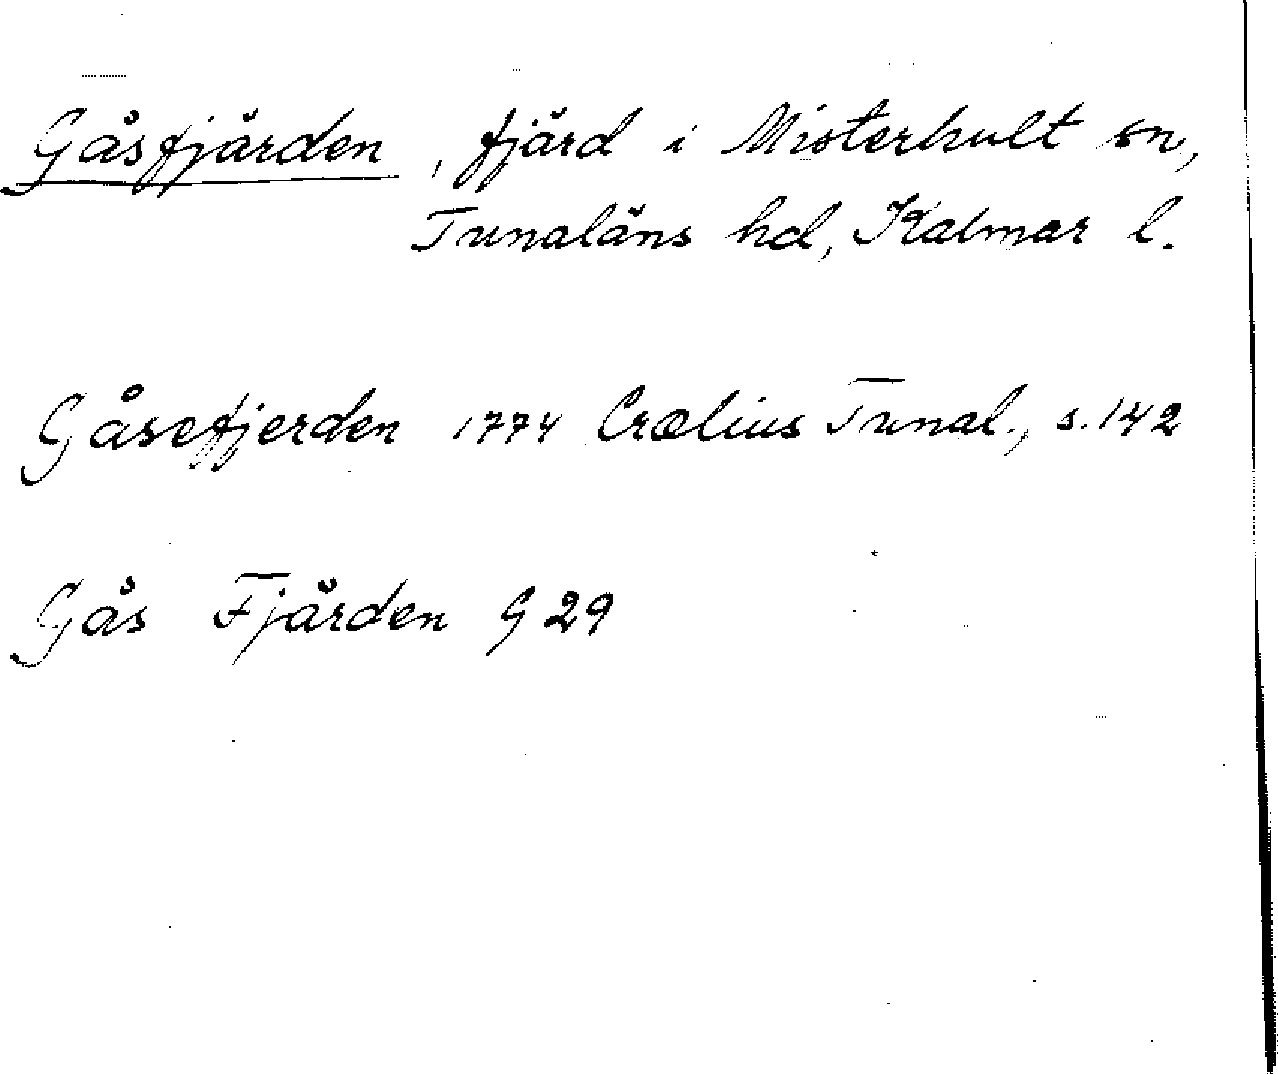 Gåsfjärden, fjärd i Misterhult sn,
Tunaläns hd, Kalmar l.
Gåsefjerden 1774 Crælius Tunal., s. 142
Gås Fjärden G 29